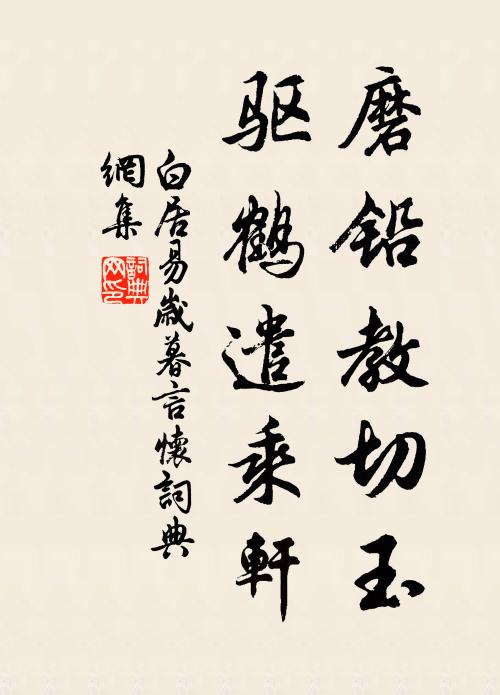 磨铅教切玉
驱鹤遣乘軒
白居易歲暮言懷詞典
網集
詞典
网印